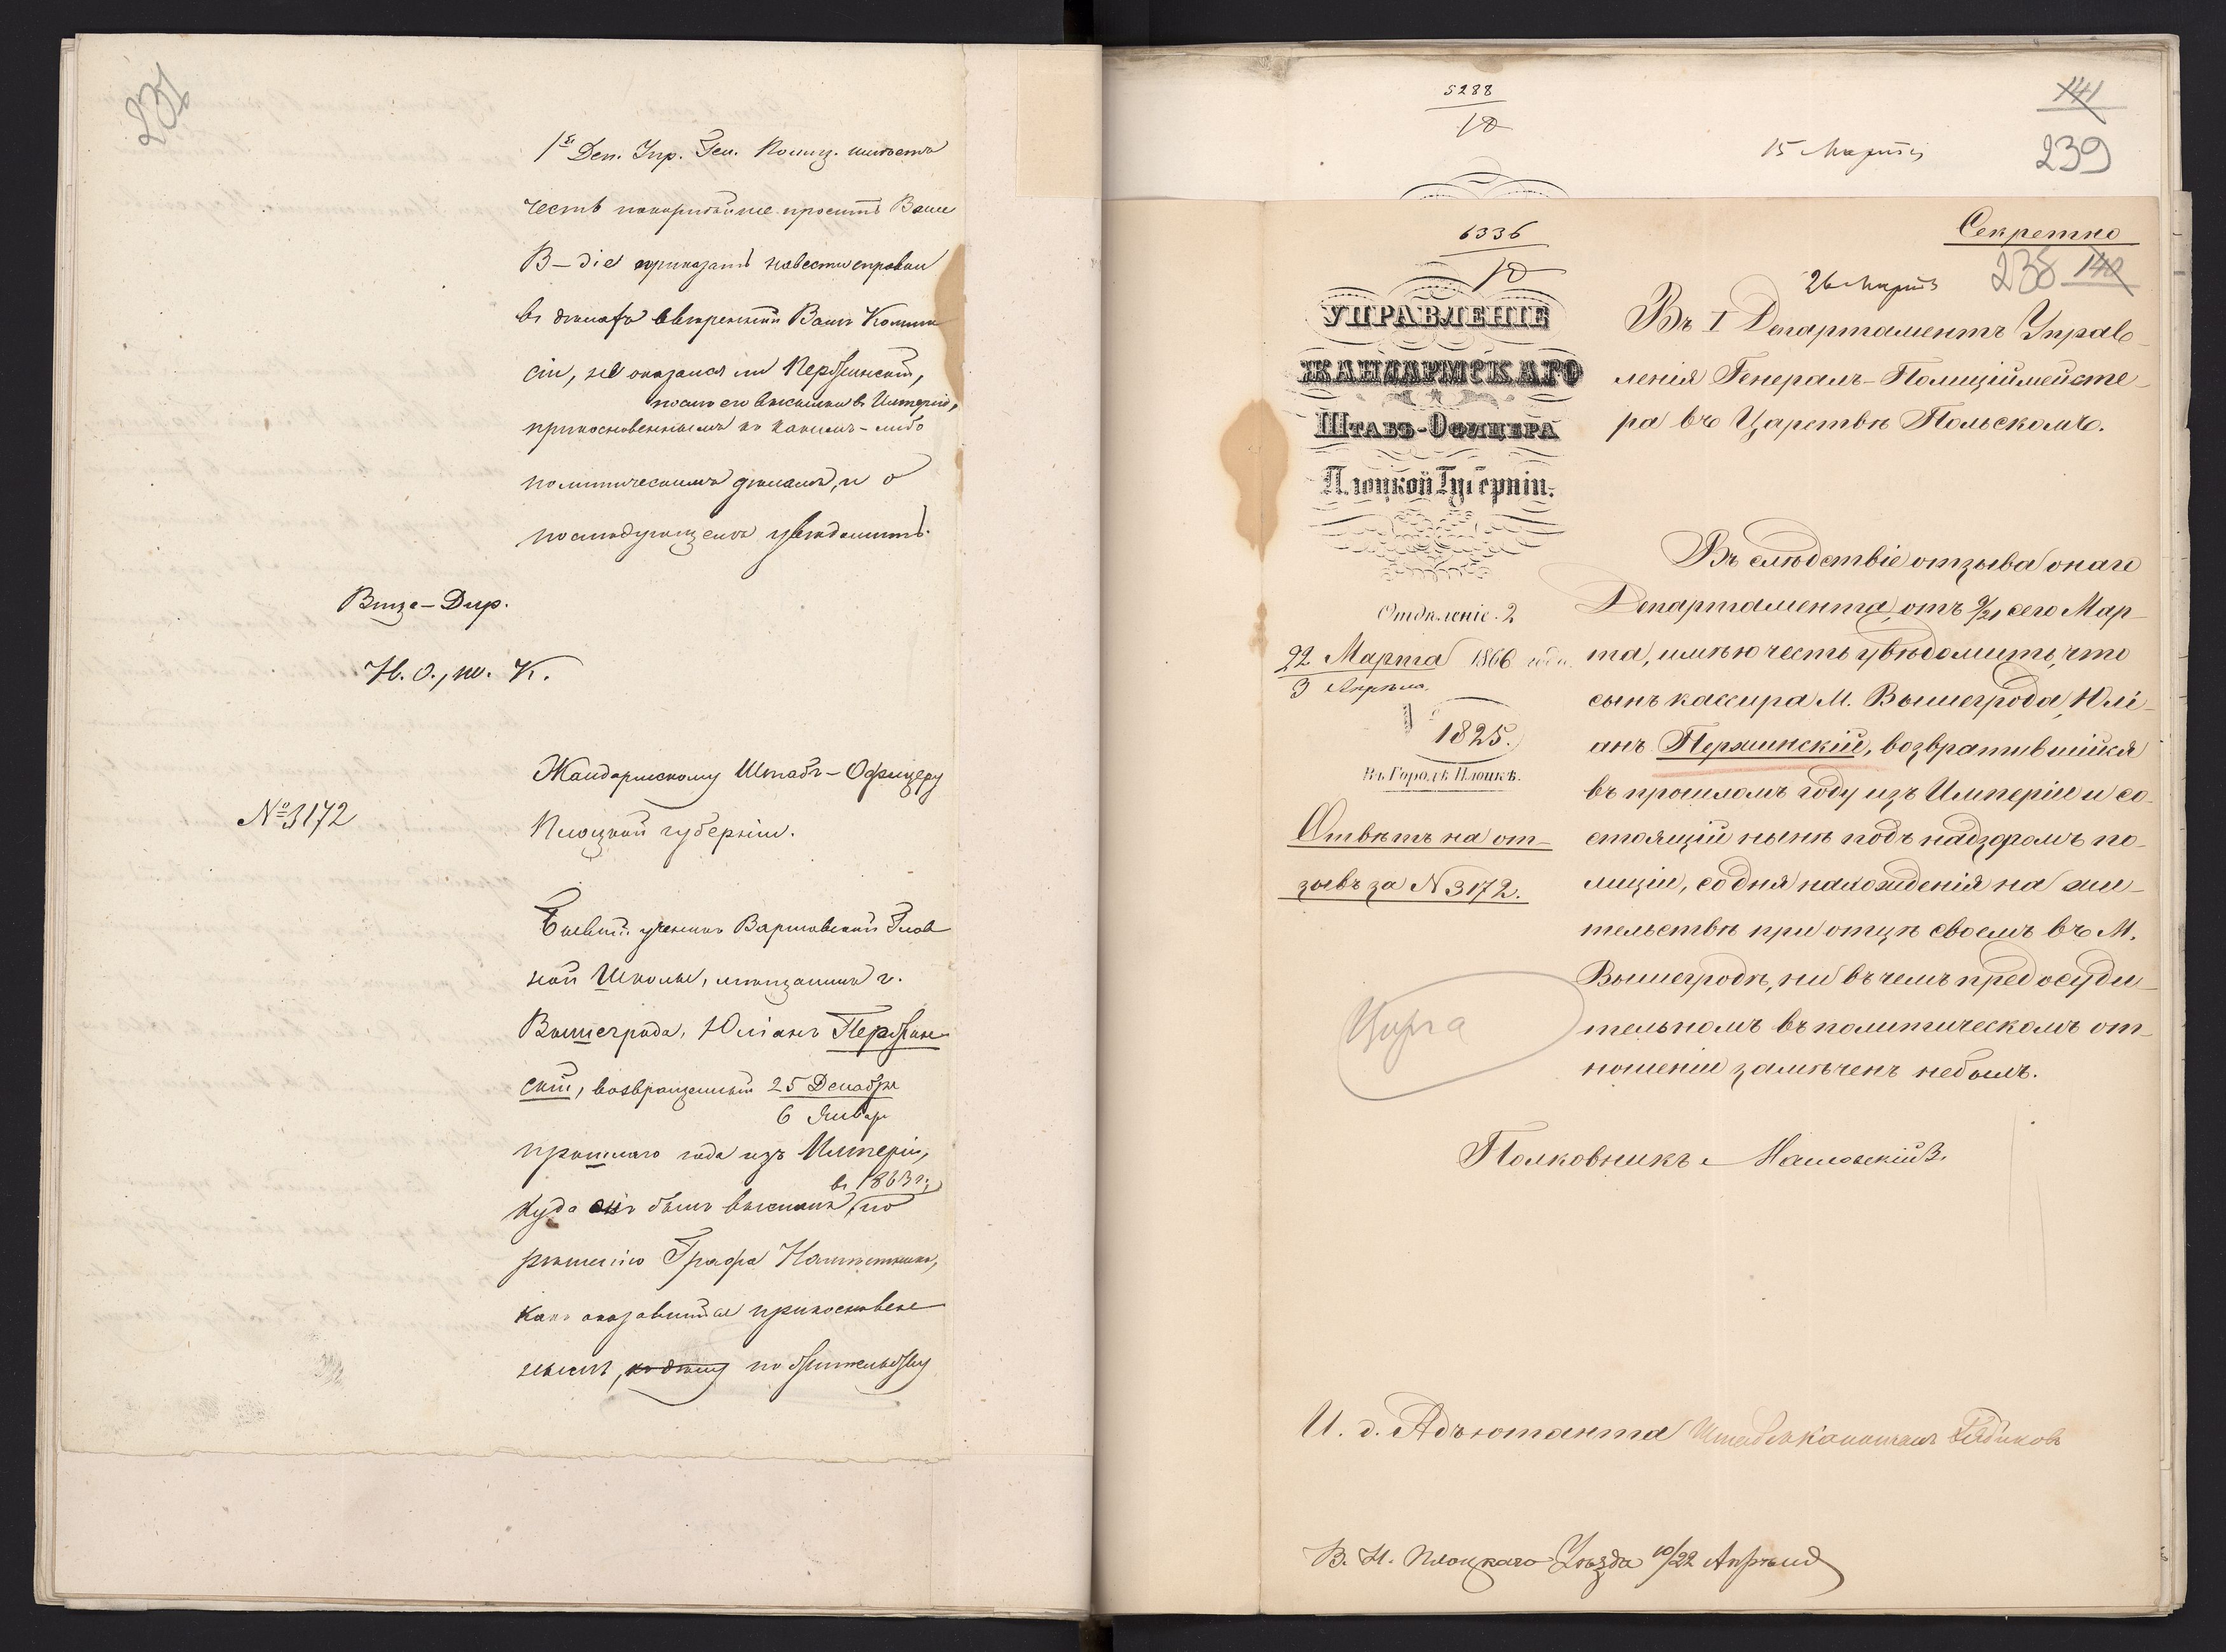 231
1й Деп. Упр. Ген. Полиц. имѣетъ
честь покорнѣйше просить Ваше
В–діе приказать навести справки
въ дѣлахъ ввѣренной Вамъ Комми
сіи, не оказался ли Пержинскій,
послѣ его высылки въ Имперію,
прикосновеннымъ къ какимъ-либо
политическимъ дѣламъ, и о
послѣдующемъ увѣдомить.
Вице-Дир.
Н. О., т. К.
№ 3172
Жандармскому Штабъ-Офицеру
Плоцкой губерніи.
Бывшій ученикъ Варшавской Глав
ной Школы, мѣщанинъ г.
Вышегрода, Юліанъ Пержин
скій, возвращенный 25 Декабря
6 Январ
прошлаго года изъ Имперіи,
въ 1863 г.
куда онъ былъ высланъ, по
рѣшенію Графа Намѣстника,
какъ оказавшійся прикосновен
нымъ, къ дѣлу по жительству
5288
10
15 Марта
141
239
6336
10
Секретно
26 Марта
238 140
УПРАВЛЕНІЕ
ЖАНДАРМСКАГО
Штабъ-Офицера
Плоцкой Губерніи.
Отдѣленіе. 2
22 Марта 1866 года.
3 Апрѣля.
№ 1825.
Въ Городѣ Плоцкѣ.
Отвѣтъ на от-
зывъ за N 3172.
Въ I Департаментъ Управ-
ленія Генералъ-Полиціймейсте-
ра въ Царствѣ Польскомъ.
Въ слѣдствіе отзыва онаго
Департамента, отъ 9/21 сего Мар-
та, имѣю честь увѣдомить, что
сынъ кассира М. Вышегрода, Юлі-
анъ Пержинскій, возвратившійся
въ прошломъ году изъ Имперіи и со-
стоящій нынѣ подъ надзоромъ по-
лиціи, со дня нахожденія на жи-
тельствѣ при отцѣ своемъ въ М.
Вышегродѣ, ни въ чемъ предосуди-
тельномъ въ политическомъ от-
ношеніи замѣченъ небылъ.
Полковникъ
И. д. Адъютанта Штабсъ-Капитанъ
В. Н. Плоцкаго Уѣзда 10/22 Апрѣля